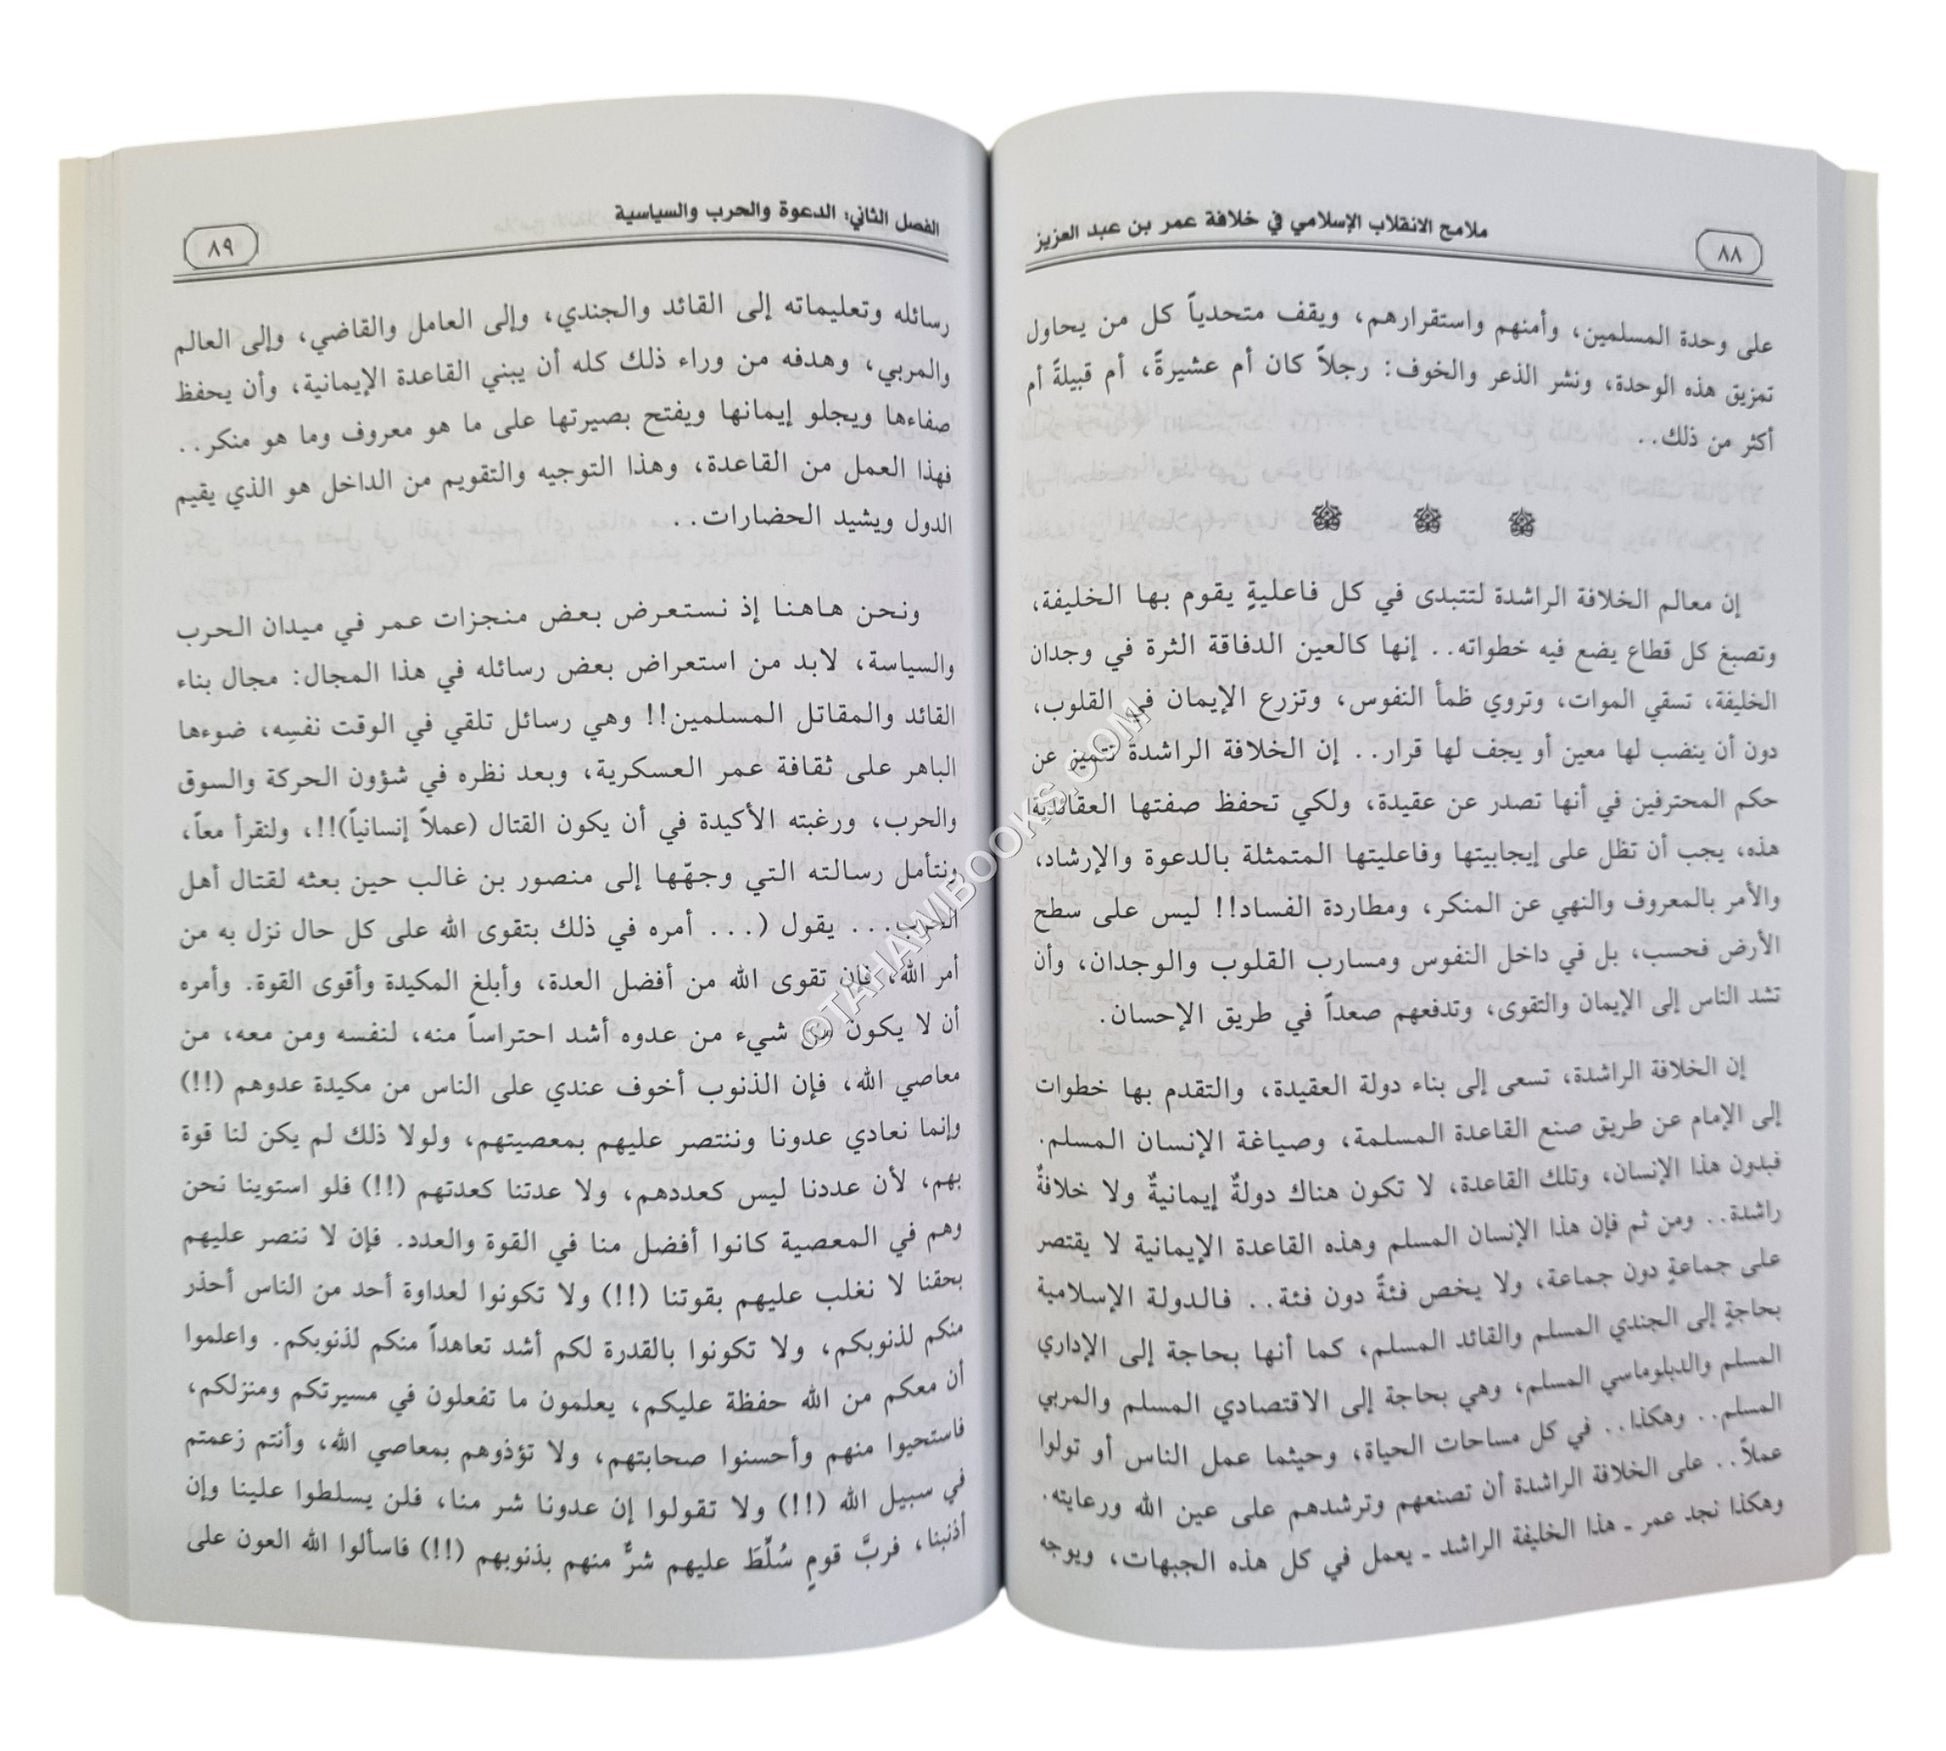 ٨٨
ملامح الانقلاب الإسلامي في خلافة عمر بن عبد العزيز
على وحدة المسلمين، وأمنهم واستقرارهم، ويقف متحدياً كل من يحاول
تمزيق هذه الوحدة، ونشر الذعر والخوف: رجلاً كان أم عشيرةً، أم قبيلةً أم
أكثر من ذلك..
إن معالم الخلافة الراشدة لتتبدى في كل فاعليةٍ يقوم بها الخليفة،
وتصبغ كل قطاع يضع فيه خطواته.. إنها كالعين الدفاقة الثرة في وجدان
الخليفة، تسقي الموات، وتروي ظمأ النفوس، وتزرع الإيمان في القلوب،
دون أن ينضب لها معين أو يجف لها قرار.. إن الخلافة الراشدة تتميز عن
حكم المحترفين في أنها تصدر عن عقيدة، ولكي تحفظ صفتها العقائدية
هذه، يجب أن تظل على إيجابيتها وفاعليتها المتمثلة بالدعوة والإرشاد،
والأمر بالمعروف والنهي عن المنكر، ومطاردة الفساد!! ليس على سطح
الأرض فحسب، بل في داخل النفوس ومسارب القلوب والوجدان، وأن
تشد الناس إلى الإيمان والتقوى، وتدفعهم صعداً في طريق الإحسان.
إن الخلافة الراشدة، تسعى إلى بناء دولة العقيدة، والتقدم بها خطوات
إلى الإمام عن طريق صنع القاعدة المسلمة، وصياغة الإنسان المسلم.
فبدون هذا الإنسان، وتلك القاعدة، لا تكون هناك دولةٌ إيمانيةٌ ولا خلافةٌ
راشدة.. ومن ثم فإن هذا الإنسان المسلم وهذه القاعدة الإيمانية لا يقتصر
على جماعةٍ دون جماعة، ولا يخص فئةً دون فئة.. فالدولة الإسلامية
بحاجةٍ إلى الجندي المسلم والقائد المسلم، كما أنها بحاجة إلى الإداري
المسلم والدبلوماسي المسلم، وهي بحاجة إلى الاقتصادي المسلم والمربي
المسلم.. وهكذا.. في كل مساحات الحياة، وحيثما عمل الناس أو تولوا
عملاً.. على الخلافة الراشدة أن تصنعهم وترشدهم على عين الله ورعايته.
وهكذا نجد عمر ـ هذا الخليفة الراشد ـ يعمل في كل هذه الجبهات، ويوجه
الفصل الثاني: الدعوة والحرب والسياسية
٨٩
رسائله وتعليماته إلى القائد والجندي، وإلى العامل والقاضي، وإلى العالم
والمربي، وهدفه من وراء ذلك كله أن يبني القاعدة الإيمانية، وأن يحفظ
صفاءها ويجلو إيمانها ويفتح بصيرتها على ما هو معروف وما هو منكر..
فهذا العمل من القاعدة، وهذا التوجيه والتقويم من الداخل هو الذي يقيم
الدول ويشيد الحضارات..
ونحن هاهنا إذ نستعرض بعض منجزات عمر في ميدان الحرب
والسياسة، لابد من استعراض بعض رسائله في هذا المجال: مجال بناء
القائد والمقاتل المسلمين!! وهي رسائل تلقي في الوقت نفسِه، ضوءها
الباهر على ثقافة عمر العسكرية، وبعد نظره في شؤون الحركة والسوق
والحرب، ورغبته الأكيدة في أن يكون القتال (عملاً إنسانياً)!!، ولنقرأ معاً،
ونتأمل رسالته التي وجهّها إلى منصور بن غالب حين بعثه لقتال أهل
الحرب... يقول (... أمره في ذلك بتقوى الله على كل حال نزل به من
أمر الله، فإن تقوى الله من أفضل العدة، وأبلغ المكيدة وأقوى القوة. وأمره
أن لا يكون من شيء من عدوه أشد احتراساً منه، لنفسه ومن معه، من
معاصي الله، فإن الذنوب أخوف عندي على الناس من مكيدة عدوهم (!!)
وإنما نعادي عدونا وننتصر عليهم بمعصيتهم، ولولا ذلك لم يكن لنا قوة
بهم، لأن عددنا ليس كعددهم، ولا عدتنا كعدتهم (!!) فلو استوينا نحن
وهم في المعصية كانوا أفضل منا في القوة والعدد. فإن لا ننصر عليهم
بحقنا لا نغلب عليهم بقوتنا (!!) ولا تكونوا لعداوة أحد من الناس أحذر
منكم لذنوبكم، ولا تكونوا بالقدرة لكم أشد تعاهداً منكم لذنوبكم. واعلموا
أن معكم من الله حفظة عليكم، يعلمون ما تفعلون في مسيرتكم ومنزلكم،
فاستحيوا منهم وأحسنوا صحابتهم، ولا تؤذوهم بمعاصي الله، وأنتم زعمتم
في سبيل الله (!!) ولا تقولوا إن عدونا شر منا، فلن يسلطوا علينا وإن
أذنبنا، فربَّ قومٍ سُلِّطَ عليهم شرٌّ منهم بذنوبهم (!!) فاسألوا الله العون على
©TAHAWIBOOKS.COM